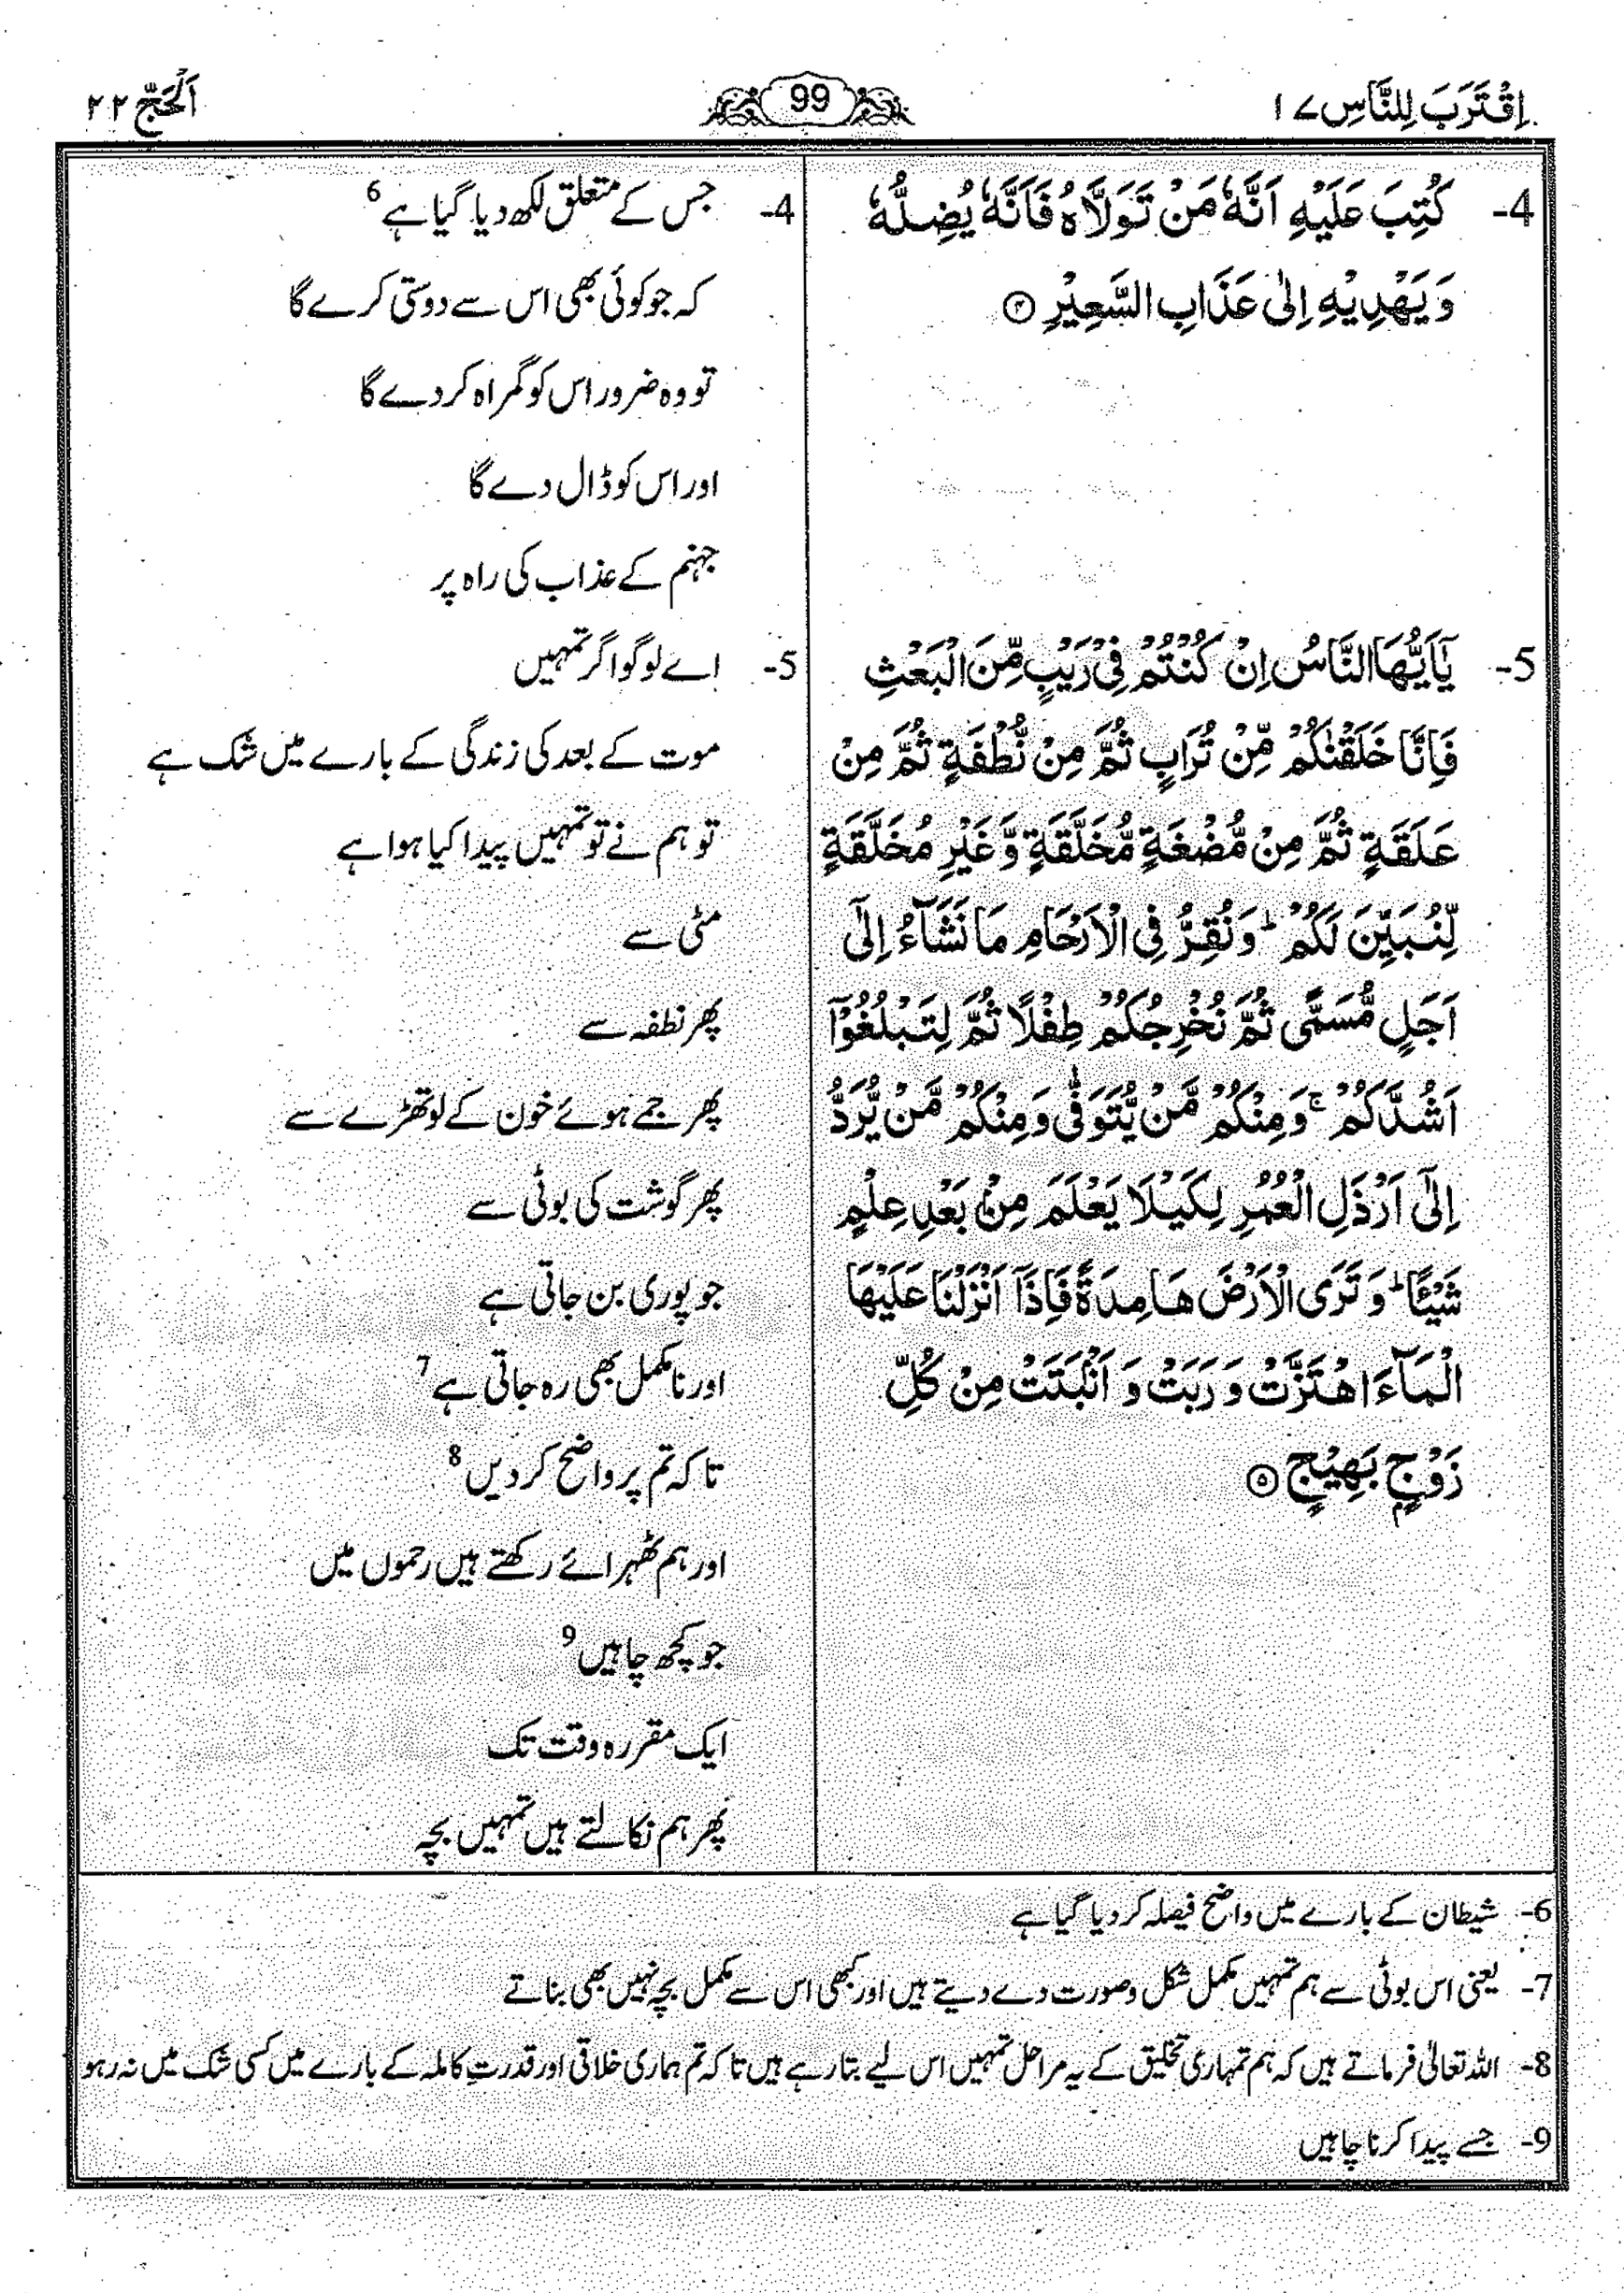 اِقْتَرَبَ لِلنَّاسِ ۱۷
99
اَلْحَجّ ۲۲
4- كُتِبَ عَلَيْهِ اَنَّهٗ مَنْ تَوَلَّاهُ فَاَنَّهٗ يُضِلُّهٗ
وَيَهْدِيْهِ اِلٰى عَذَابِ السَّعِيْرِ ۴
5- يٰٓاَيُّهَا النَّاسُ اِنْ كُنْتُمْ فِيْ رَيْبٍ مِّنَ الْبَعْثِ
فَاِنَّا خَلَقْنٰكُمْ مِّنْ تُرَابٍ ثُمَّ مِنْ نُّطْفَةٍ ثُمَّ مِنْ
عَلَقَةٍ ثُمَّ مِنْ مُّضْغَةٍ مُّخَلَّقَةٍ وَّغَيْرِ مُخَلَّقَةٍ
لِّنُبَيِّنَ لَكُمْ ؕ وَنُقِرُّ فِي الْاَرْحَامِ مَا نَشَآءُ اِلٰٓى
اَجَلٍ مُّسَمًّى ثُمَّ نُخْرِجُكُمْ طِفْلًا ثُمَّ لِتَبْلُغُوْٓا
اَشُدَّكُمْ ۚ وَمِنْكُمْ مَّنْ يُّتَوَفّٰى وَمِنْكُمْ مَّنْ يُّرَدُّ
اِلٰٓى اَرْذَلِ الْعُمُرِ لِكَيْلَا يَعْلَمَ مِنْۢ بَعْدِ عِلْمٍ
شَيْـًٔا ؕ وَتَرَى الْاَرْضَ هَامِدَةً فَاِذَآ اَنْزَلْنَا عَلَيْهَا
الْمَآءَ اهْتَزَّتْ وَرَبَتْ وَاَنْۢبَتَتْ مِنْ كُلِّ
زَوْجٍۭ بَهِيْجٍ ۵
4- جس کے متعلق لکھ دیا گیا ہے 6
کہ جو کوئی بھی اس سے دوستی کرے گا
تو وہ ضرور اس کو گمراہ کر دے گا
اور اس کو ڈال دے گا
جہنم کے عذاب کی راہ پر
5- اے لوگو اگر تمہیں
موت کے بعد کی زندگی کے بارے میں شک ہے
تو ہم نے تو تمہیں پیدا کیا ہوا ہے
مٹی سے
پھر نطفہ سے
پھر جمے ہوئے خون کے لوتھڑے سے
پھر گوشت کی بوٹی سے
جو پوری بن جاتی ہے
اور نامکمل بھی رہ جاتی ہے 7
تاکہ تم پر واضح کر دیں 8
اور ہم ٹھہرائے رکھتے ہیں رحموں میں
جو کچھ چاہیں 9
ایک مقررہ وقت تک
پھر ہم نکالتے ہیں تمہیں بچہ
6- شیطان کے بارے میں واضح فیصلہ کر دیا گیا ہے
7- یعنی اس بوٹی سے ہم تمہیں مکمل شکل و صورت دے دیتے ہیں اور کبھی اس سے مکمل بچہ نہیں بھی بناتے
8- اللہ تعالیٰ فرماتے ہیں کہ ہم تمہاری تخلیق کے یہ مراحل تمہیں اس لیے بتا رہے ہیں تاکہ تم ہماری خلاقی اور قدرتِ کاملہ کے بارے میں کسی شک میں نہ رہو
9- جسے پیدا کرنا چاہیں